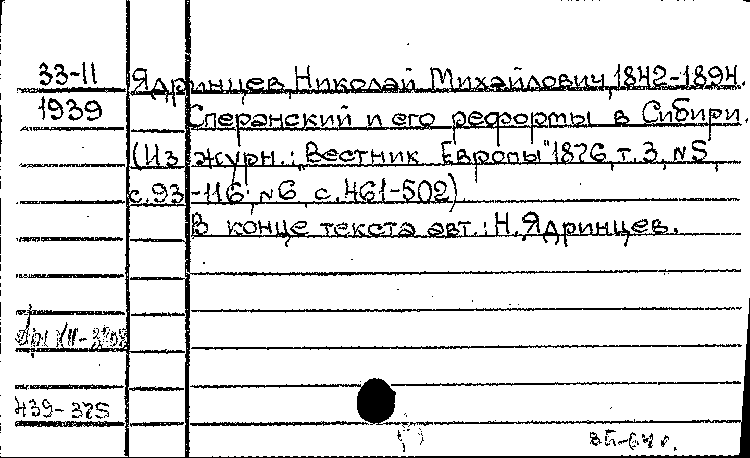 33-11
1939
Ядринцев, Николай Михайлович, 1842-1894.
Сперанский и его реформы в Сибири.
(Из журн.: "Вестник Европы" 1876, т. 3, №5,
с.93-116; №6, с.461-502).
В конце текста авт.: Н. Ядринцев.
439-375